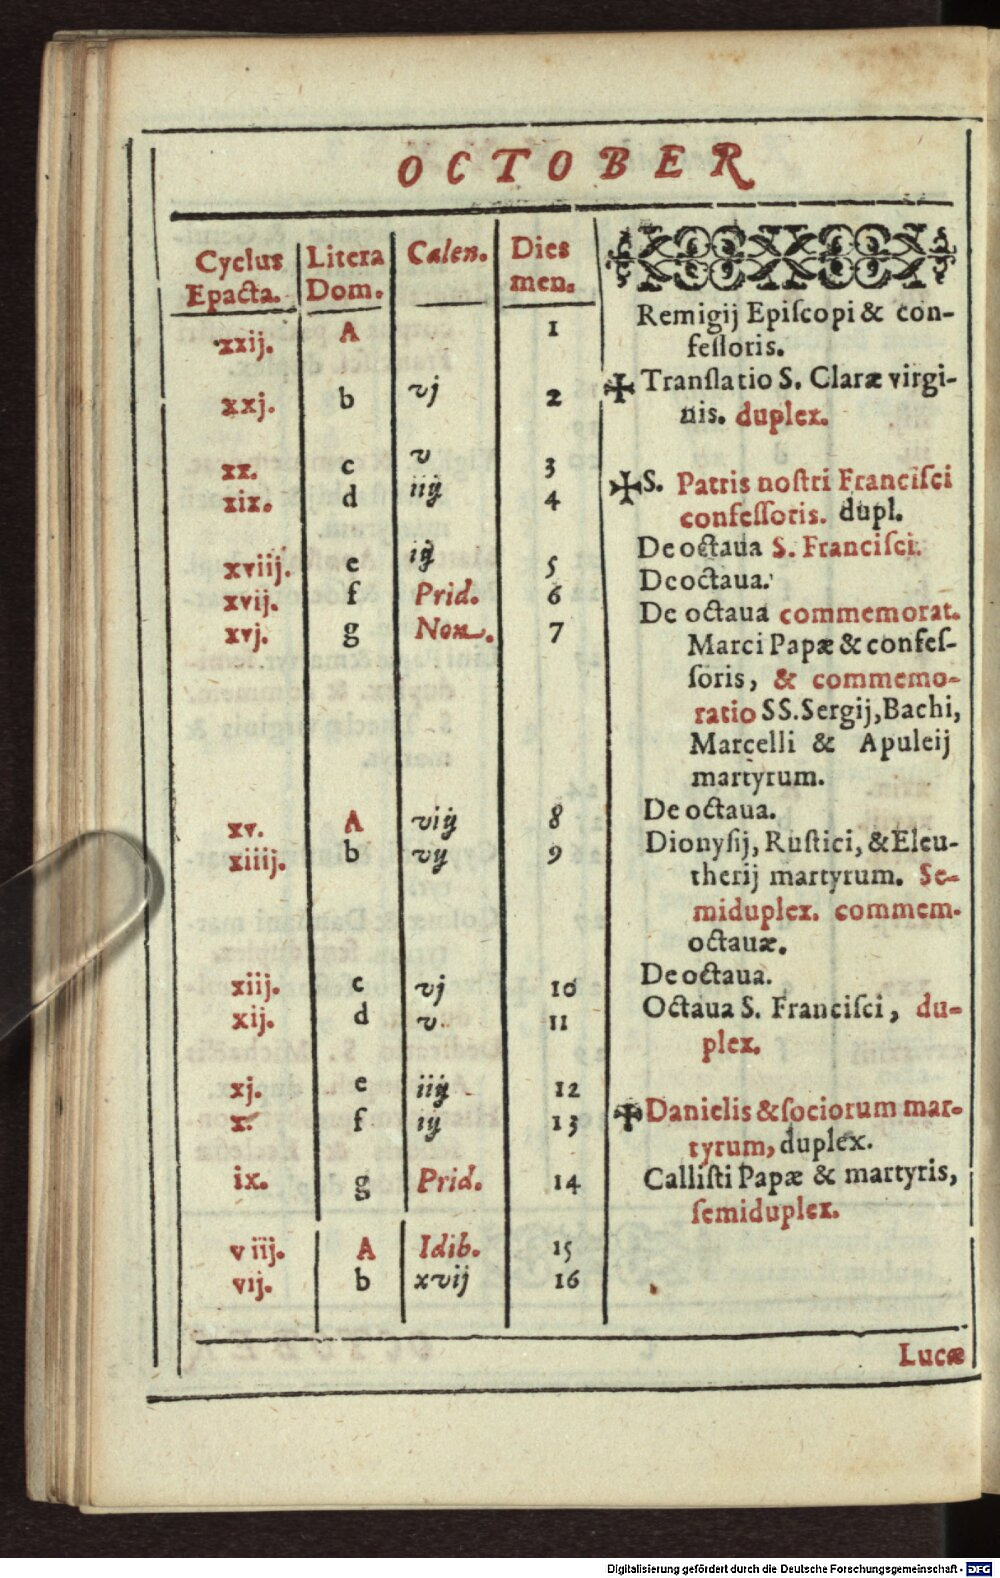 OCTOBER
Cyclus Epacta. Litera Dom. Calen. Dies men.
xxij. A 1 Remigij Epiſcopi & con-
feſſoris.
xxj. b vj 2 ✠ Tranſlatio S. Claræ virgi-
nis. duplex.
xx. c v 3
xix. d iiij 4 ✠ S. Patris noſtri Franciſci
confeſſoris. dupl.
xviij. e iij 5 De octaua S. Franciſci.
xvij. f Prid. 6 De octaua.
xvj. g Non. 7 De octaua commemorat.
Marci Papæ & confeſ-
ſoris, & commemo-
ratio SS. Sergij, Bachi,
Marcelli & Apuleij
martyrum.
xv. A viij 8 De octaua.
xiiij. b vij 9 Dionyſij, Ruſtici, & Eleu-
therij martyrum. Se-
miduplex. commem.
octauæ.
xiij. c vj 10 De octaua.
xij. d v. 11 Octaua S. Franciſci, du-
plex.
xj. e iiij 12
x. f iij 13 ✠ Danielis & ſociorum mar-
tyrum, duplex.
ix. g Prid. 14 Calliſti Papæ & martyris,
ſemiduplex.
viij. A Idib. 15
vij. b xvij 16
Lucæ
Digitalisierung gefördert durch die Deutsche Forschungsgemeinschaft - DFG